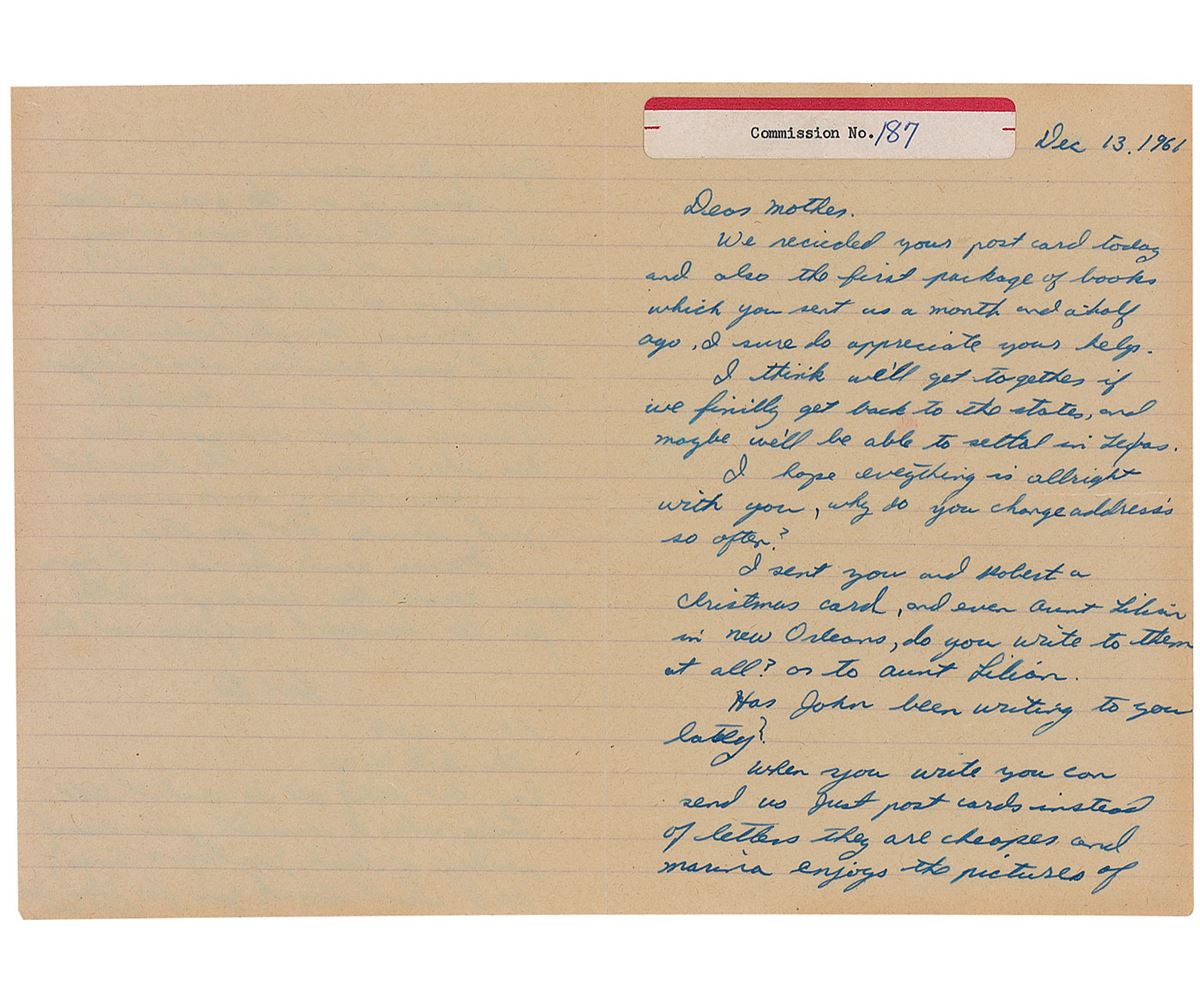 Commission No. 187
Dec 13, 1961
Dear mother.
We recieded your post card today
and also the first package of books
which you sent us a month and a half
ago, I sure do appreciate your help.
I think we'll get together if
we finilly get back to the states, and
maybe we'll be able to settal in Texas.
I hope eveything is allright
with you, why do you change address's
so often?
I sent you and Robert a
christmas card, and even aunt Lilian
in new Orleans, do you write to them
at all? or to aunt Lilian.
Has John been writing to you
lately?
when you write you can
send us Just post cards instead
of letters they are cheaper and
marina enjoys the pictures of